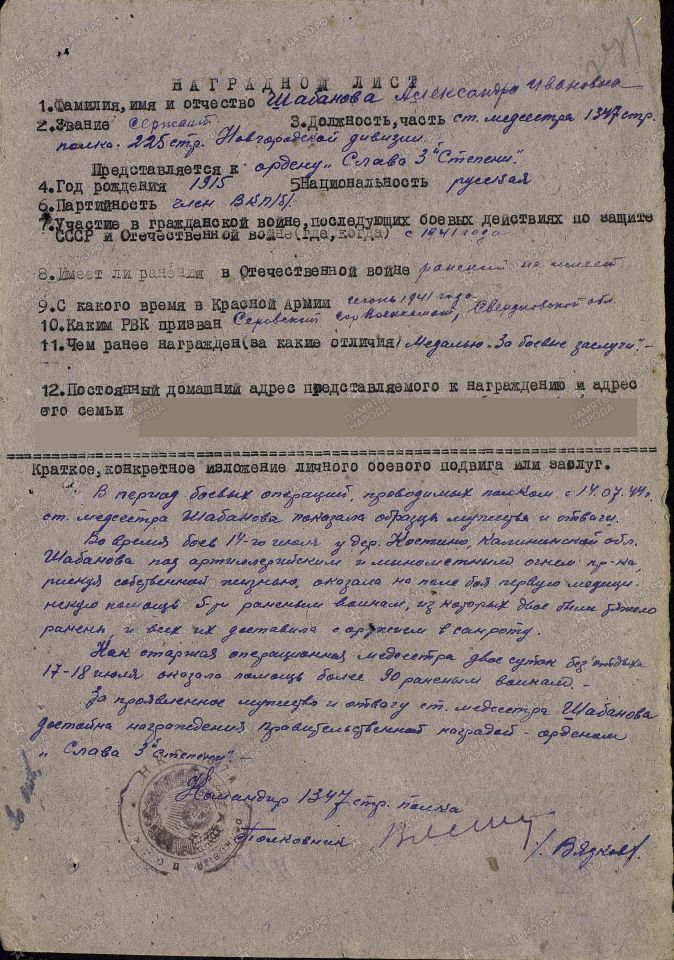 НАГРАДНОЙ ЛИСТ
1.Фамилия,имя и отчество Шабанова Александра Ивановна
2.Звание Сержант. 3.Должность,часть ст. медсестра 1347 стр.
полка. 225 стр. Новгородской дивизии.
Представляется к ордену „Слава 3й степени".
4.Год рождения 1915 5Национальность русская
6.Партийность член ВКП/б/.
7.Участие в гражданской войне,последующих боевых действиях по защите
СССР и Отечественной войне(где,когда) с 1941 года
8.Имеет ли ранения в Отечественной войне ранений не имеет.
9.С какого время в Красной Армии июнь 1941 года
10.Каким РВК призван Серовский Свердловской обл.
11.Чем ранее награжден(за какие отличия) Медалью „За боевые заслуги".-
12.Постоянный домашний адрес представляемого к награждению и адрес
его семьи
Краткое,конкретное изложение личного боевого подвига или заслуг.
В период боевых операций, проводимых полком с 14.07.44г.
ст. медсестра Шабанова показала образцы мужества и отваги.
Во время боев 14-го июля у дер. Костино, Калининской обл.
Шабанова под артиллерийским и минометным огнем пр-ка,
рискуя собственной жизнью, оказала на поле боя первую медици-
нскую помощь 5-ри раненым воинам, из которых двое были тяжело
ранены, и всех их доставила с оружием в санроту.
Как старшая операционная медсестра двое суток без отдыха
17-18 июля оказала помощь более 90 раненым воинам.-
За проявленное мужество и отвагу ст. медсестра Шабанова
достойна награждения Правительственной наградой - орденом
„Слава 3й степени".-
Командир 1347 стр. полка
Полковник /. Вязков/.